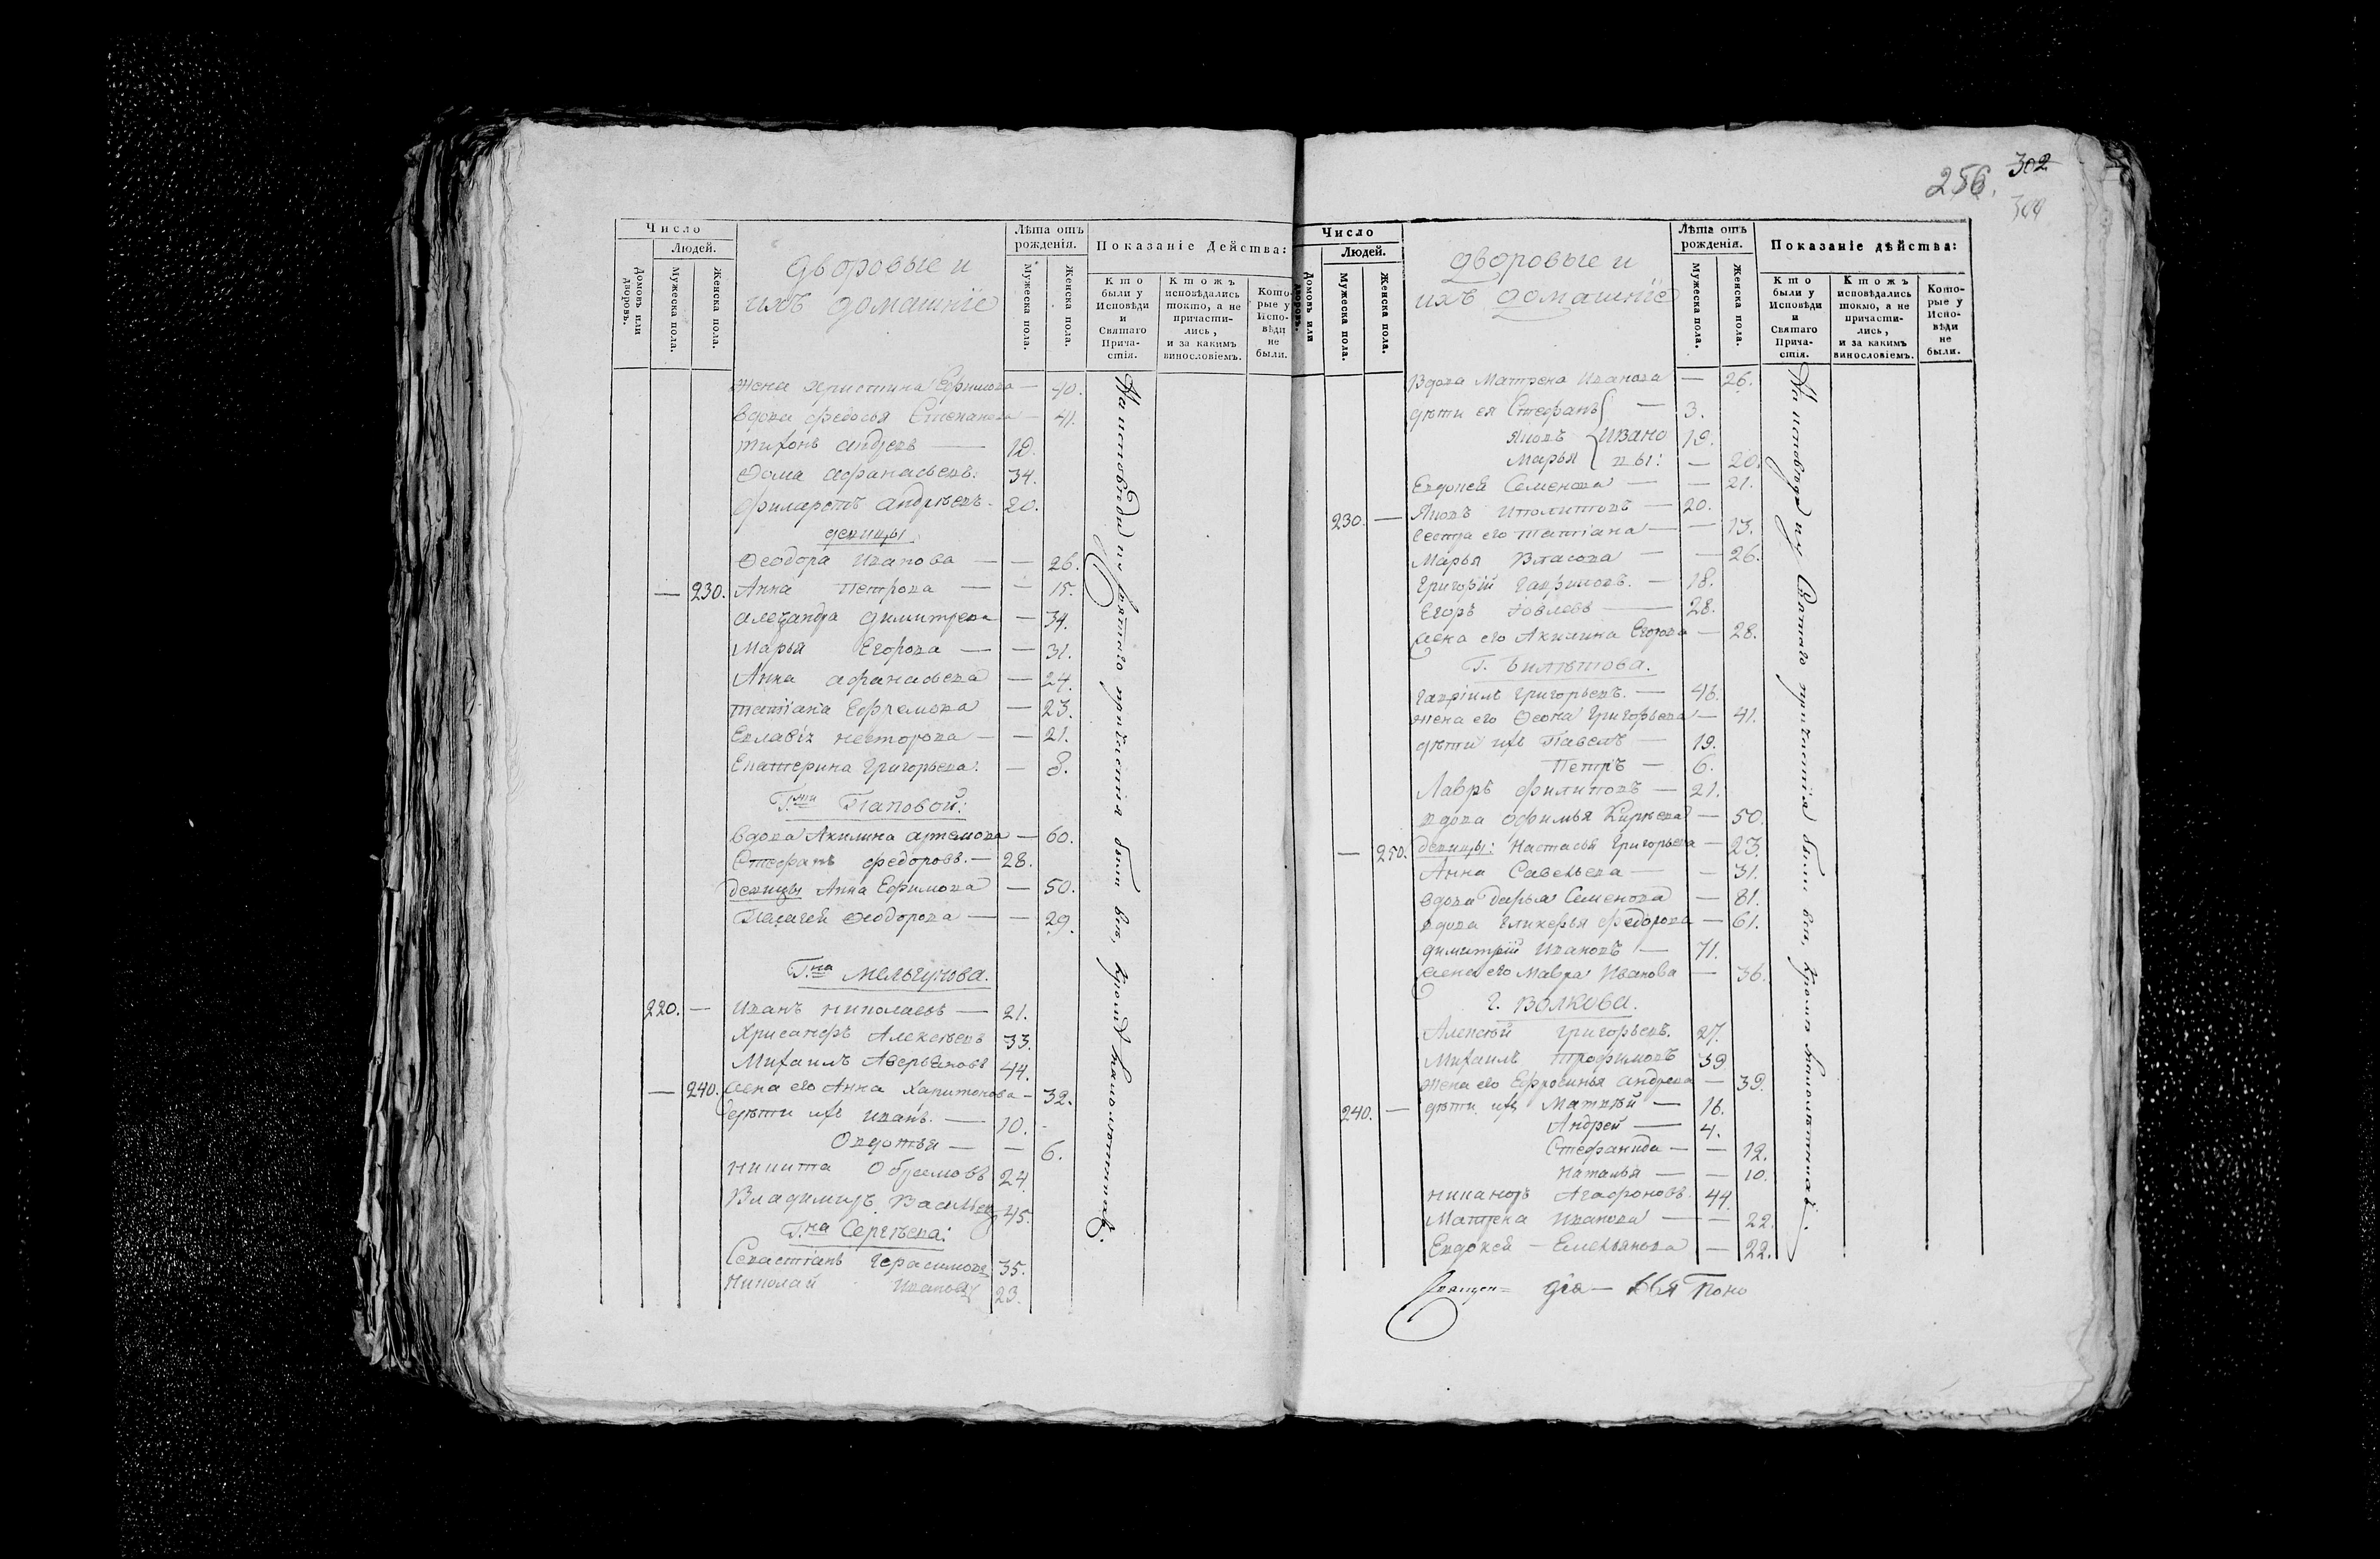 Число
Людей.
Домовъ или дворовъ.
Мужеска пола.
Женска пола.
дворовые и
ихъ домашніе
Лѣта отъ
рожденія.
Мужеска пола.
Женска пола.
Показаніе Дѣйства:
Кто были у Исповѣди и Святаго Прича-стія.
Ктожъ исповѣдались токмо, а не причасти-лись, и за какимъ винословіемъ.
Кото-рые у Испо-вѣди не были.
жена Христина Ефимова — 40.
вдова Федосья Степанова — 41.
Тихонъ Андреевъ — 19.
Ѳома Афанасьевъ. 34.
Филаретъ Андрѣевъ. 20.
девицы
Ѳеодора Иванова — — 26.
— 230. Анна Петрова — — 15.
Александра Димитрева — 34.
Марья Егорова — — 31.
Анна Афанасьева — 24.
татіана Ефремова — 23.
— — 21.
Екатерина Григорьева. — 8.
Г.жи Паповой:
вдова Акилина Артемова — 60.
Стефанъ Федоровъ. — 28.
девицы Анна Ефимова — 50.
Палагея Ѳеодорова — — 29.
Г.на Мельгунова.
220. — Иванъ Николаевъ — 21.
Хрисанфъ Алексѣевъ 33.
Михаилъ Аверьяновъ 44.
— 240. жена его Анна Харитонова — 32.
дѣти ихъ Иванъ. — 10.
Овдотья — — 6.
Никита Обрамовъ 24
Владимиръ Васильев 45.
Г.на Сергѣева:
Севастіанъ Герасимовъ 35.
Николай Ивановъ 23.
На исповѣди и у святаго причастія были всѣ, кромѣ малолѣтнихъ.
256. 302
300
Число
Людей.
Домовъ или дворовъ.
Мужеска пола.
Женска пола.
дворовые и
ихъ домашніе
Лѣта отъ
рожденія.
Мужеска пола.
Женска пола.
Показаніе дѣйства:
Кто были у Исповѣди и Святаго Прича-стія.
Ктожъ исповѣдались токмо, а не причасти-лись, и за какимъ винословіемъ.
Кото-рые у Испо-вѣди не были.
Вдова Матрена Иванова — 26.
дѣти ея Стефанъ — 3.
Яковъ Ивано 19.
Марья вы: — 20.
Евдокея Семенова — — 21.
230. — Яковъ Иполитовъ — 20.
сестра его татіана — — 13.
Марья Власова — — 26.
Григорій Гавриловъ. — 18.
Егоръ Іовлевъ — 28.
жена его Акилина Егорова — 28.
Г. Билѣтова.
Гавріилъ Григорьевъ. — 46.
жена его Ѳеона Григорьева — 41.
дѣти ихъ Павелъ — 19.
Петръ — 6.
Лавръ Филиповъ — 21.
вдова Офимья Кирѣева — 50.
— 250. девицы: Настасья Григорьева — 23.
Анна Савельева — — 31.
вдова Дарья Семенова — 81.
вдова Гликерья Федорова — 61.
Димитрій Ивановъ — 71.
жена его Мавра Иванова — 36.
Г. Волкова.
Алексѣй Григорьевъ. 27.
Михаилъ Трофимовъ 39
жена его Ефросинья Андреева — 39.
240. — дѣти ихъ Матвѣй — 16.
Андрей — 4.
Стефанида — — 12.
Наталья — — 10.
Никаноръ Агафоновъ. 44.
Матрена Иванова — — 22.
Евдокея — Емельянова — 22.
На исповѣди и у Святаго причастія были всѣ, кромѣ малолѣтнихъ.